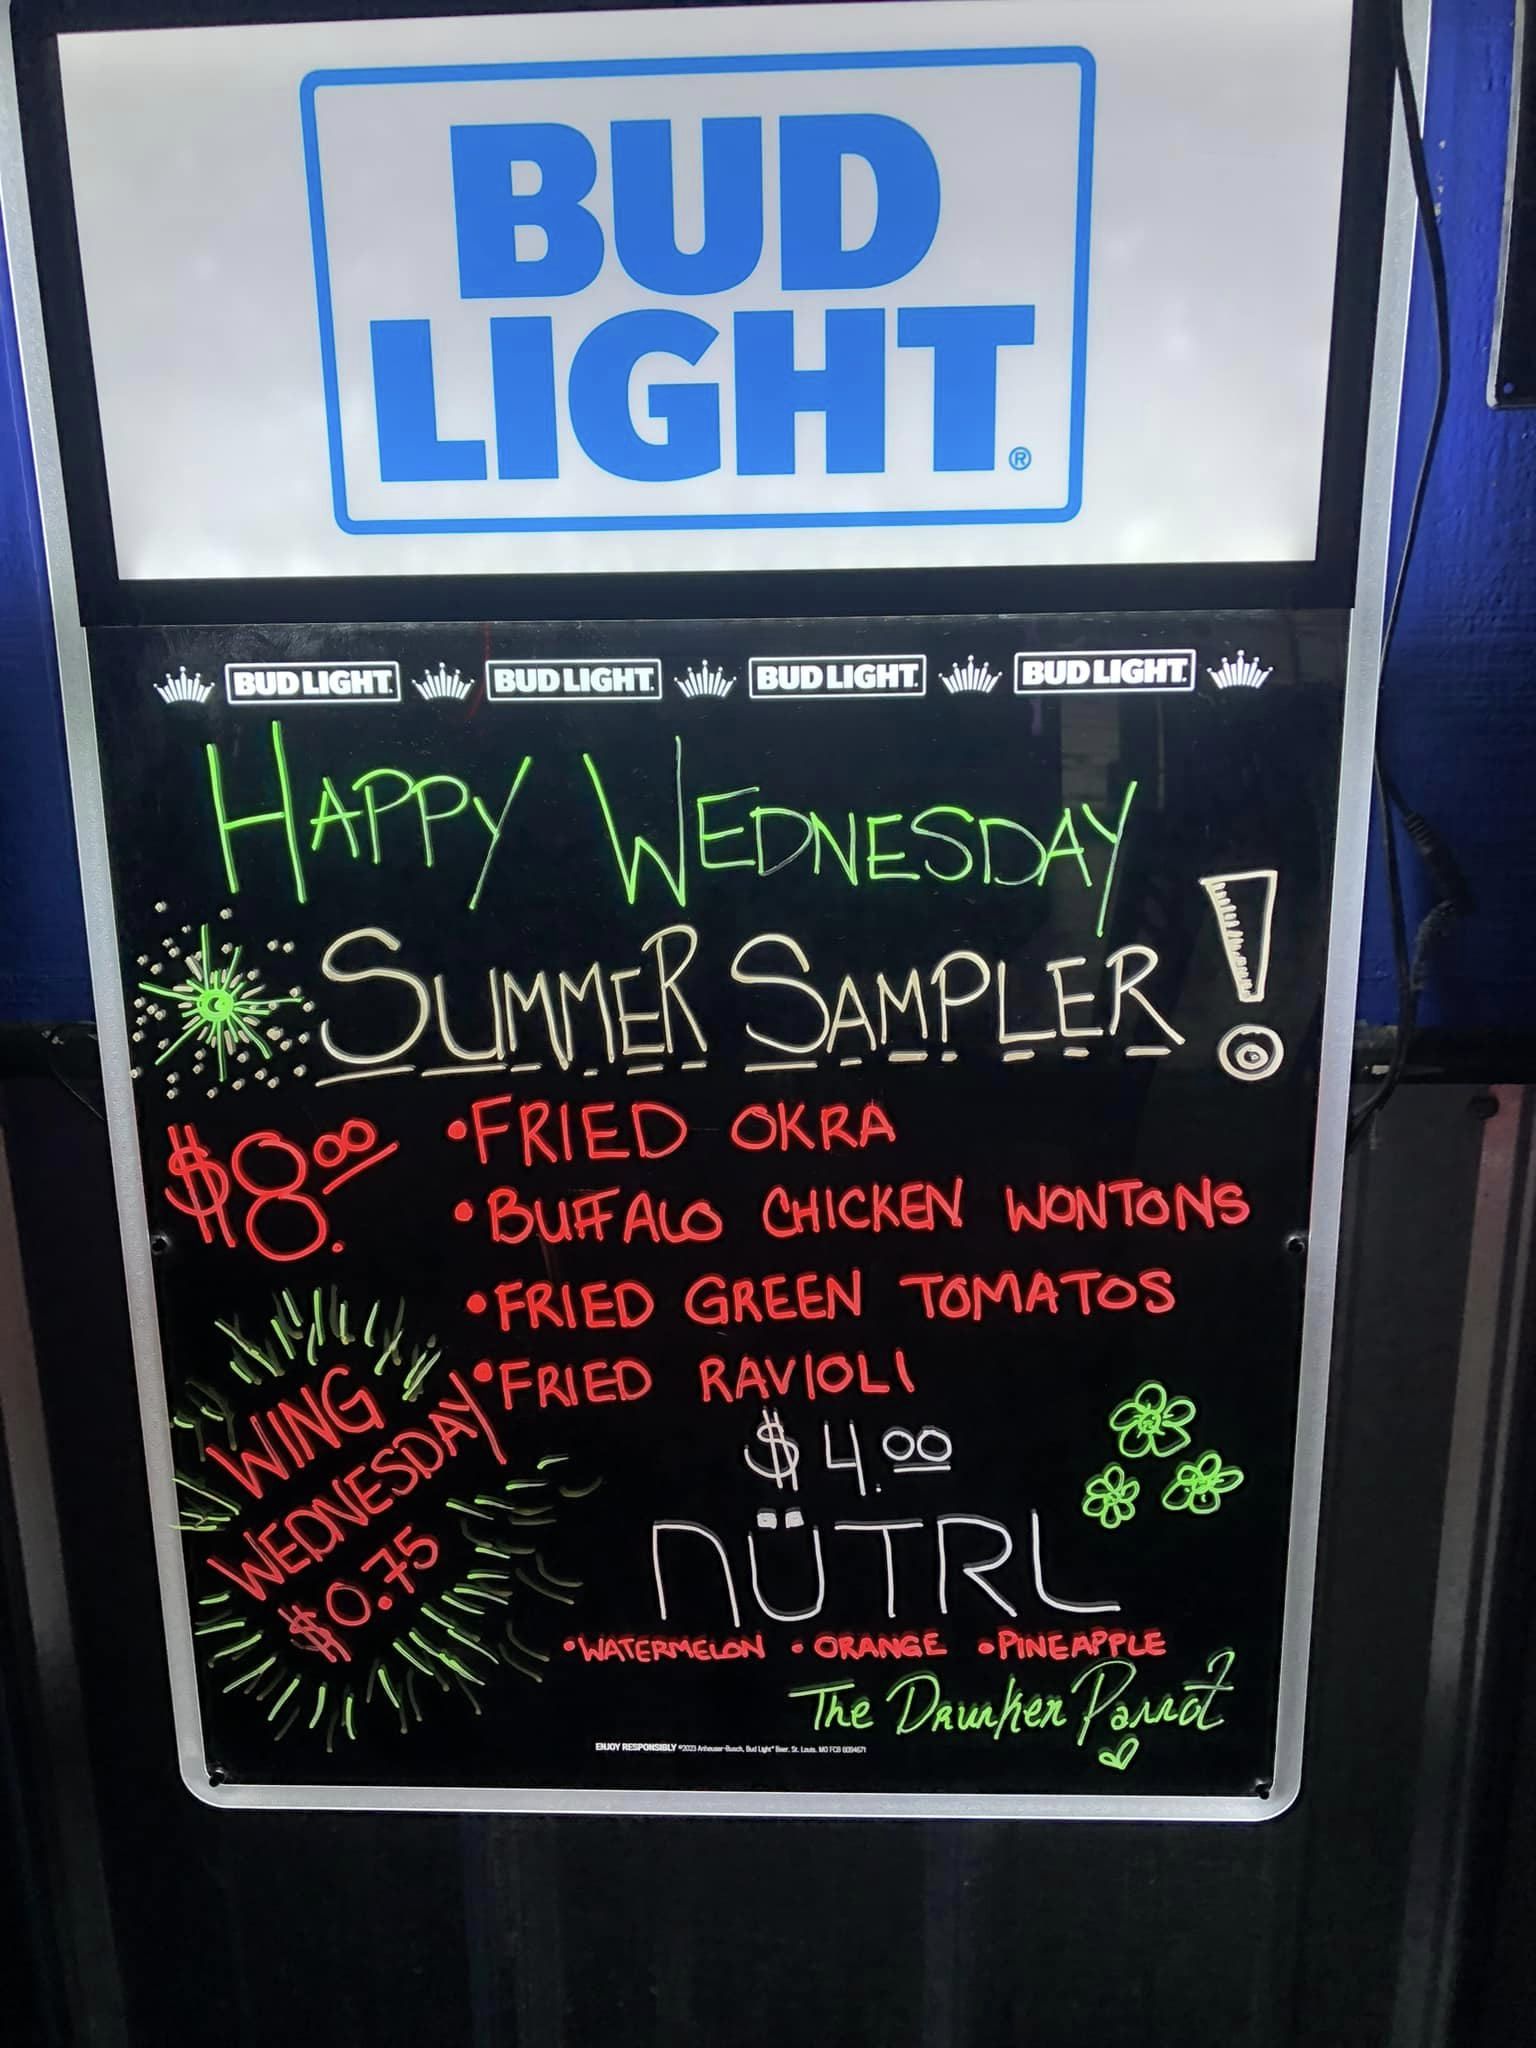 BUD
LIGHT®
BUD LIGHT. BUD LIGHT. BUD LIGHT. BUD LIGHT.
HAPPY WEDNESDAY
SUMMER SAMPLER!
$8.00
•FRIED OKRA
•BUFFALO CHICKEN WONTONS
•FRIED GREEN TOMATOS
•FRIED RAVIOLI
WING
WEDNESDAY
$0.75
$4.00
nÜTRL
•WATERMELON •ORANGE •PINEAPPLE
The Drunken Parrot
ENJOY RESPONSIBLY ©2023 Anheuser-Busch, Bud Light® Beer, St. Louis, MO